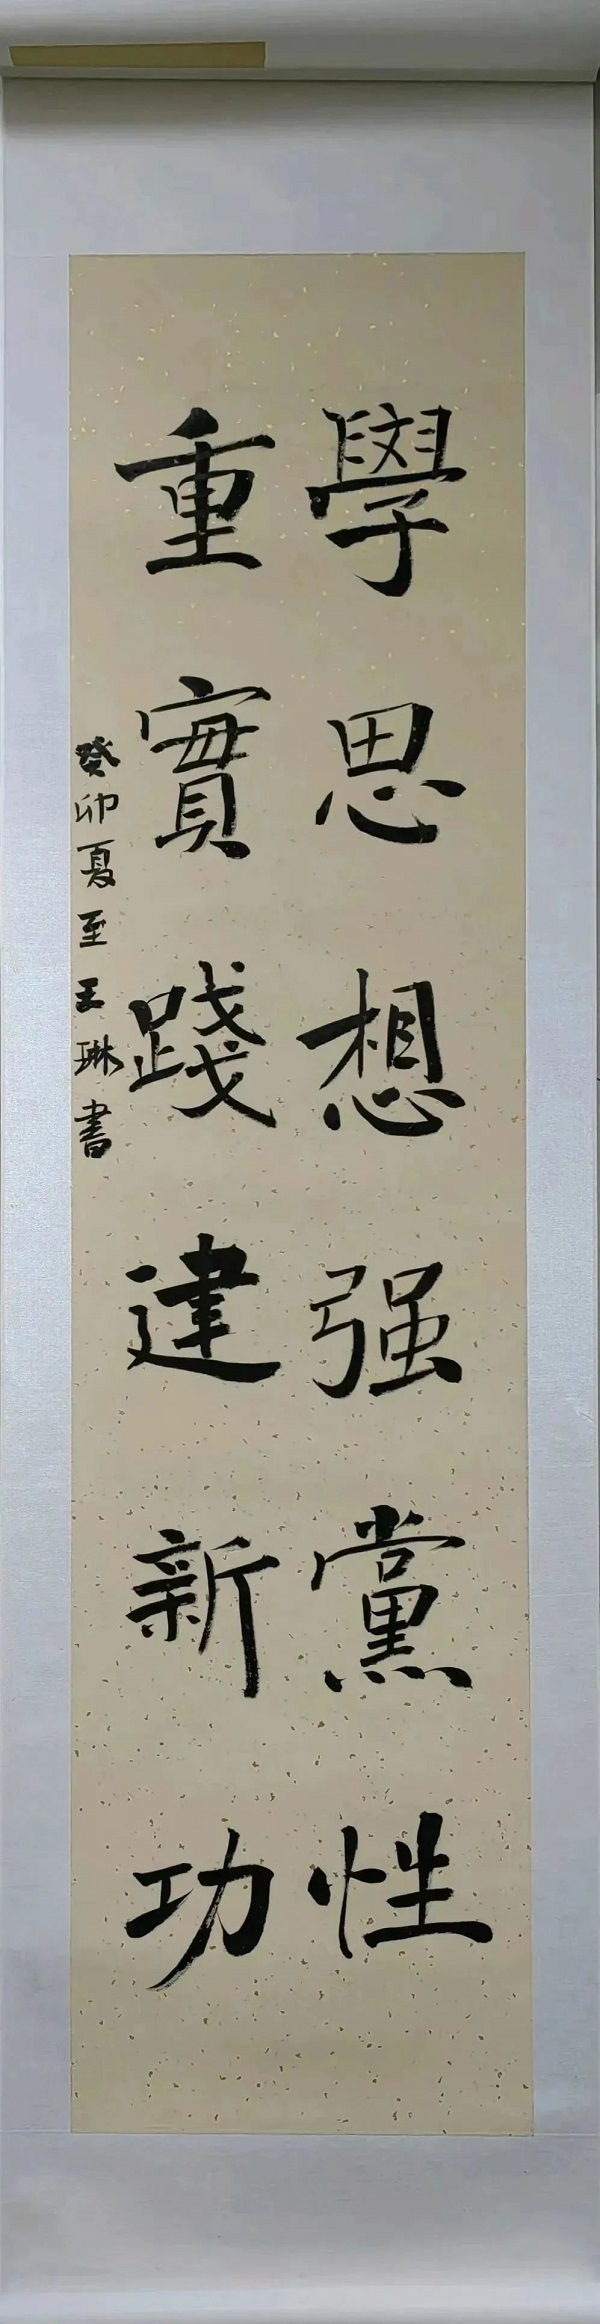 學思想强黨性
重實踐建新功
癸卯夏至王琳書